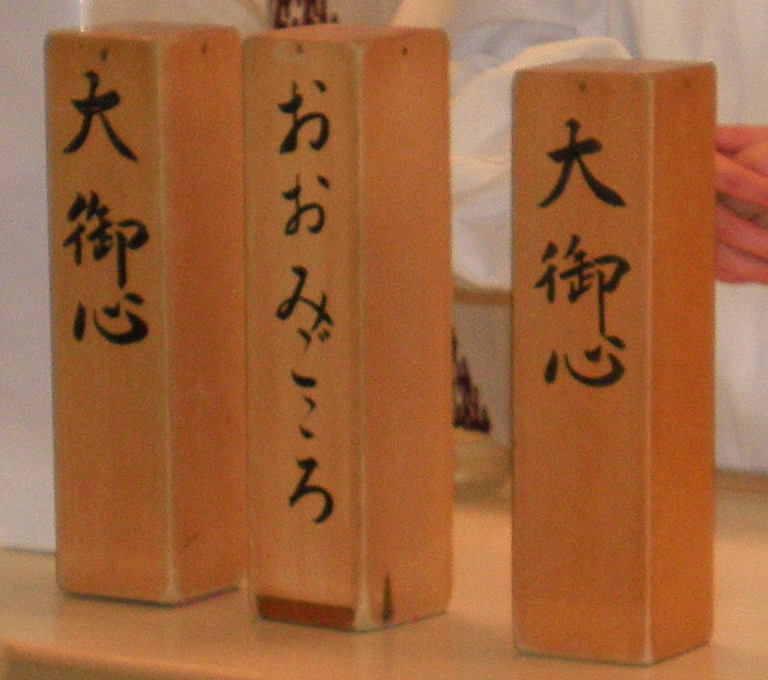 大御心
おおみごころ
大御心